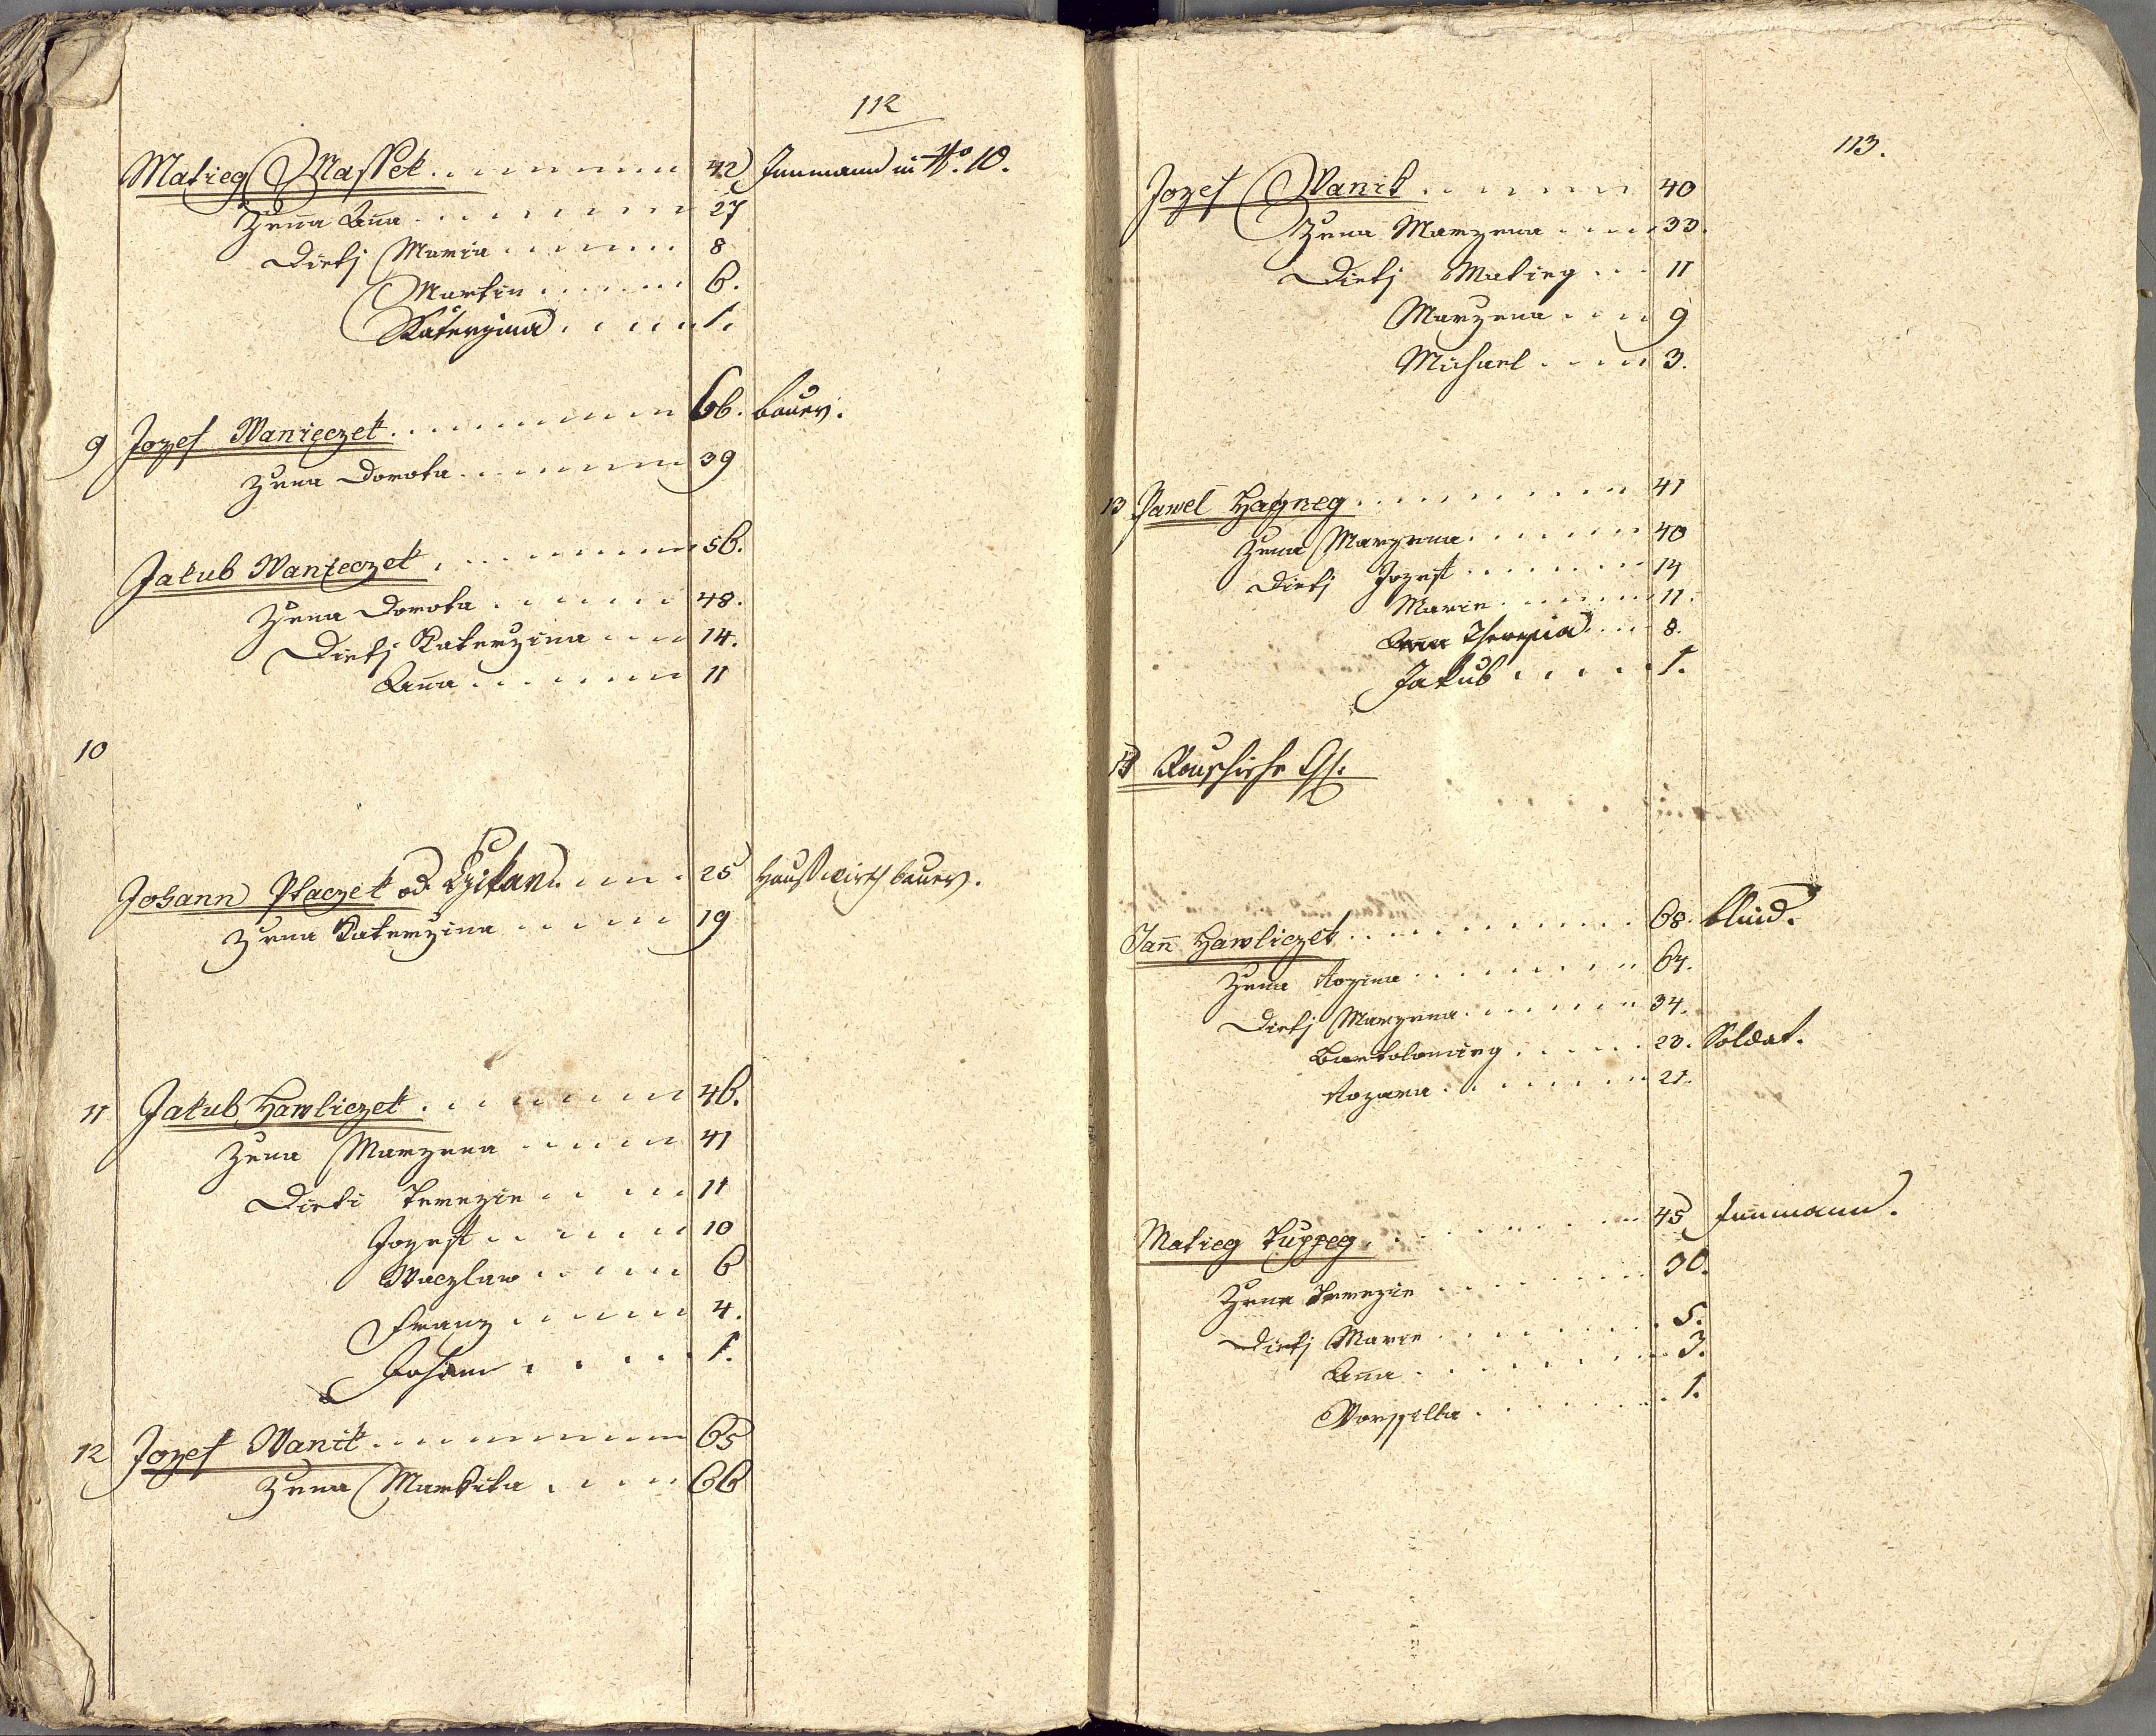 112
Matieg Massek 42 Innmann in No. 10.
Zena Anna 27
Dietj Maria 8
Martin 6.
Katerzina 1.
9 Jozef Wanieczek 66. bauer.
Zena Dorota 39
Jakub Wanieczek 56.
Zena Dorota 48.
Dietj Katerzina 14.
Anna 11
10
Johann Ptaczek od. 25 Haußwirth bauer.
Zena Katerzina 19
11 Jakub Hawliczek 46.
Zena Marzena 41
Dieti Terezie 11
Jozeff 10
Waczlaw 6
Franz 4.
Johann 1.
12 Jozef Wanik 65
Zena Markita 66
113.
Jozef Wanik 40
Zena Marzena 33.
Dietj Matieg 11
Marzena 9
Michael 3.
13 Pawel Hagneg 41
Zena Marzena 40
Dietj Jozeff 14
Marie 11.
Theresia 8.
Jakub 1.
Jann Hawliczek 68. blind.
Zena Rozina 64.
Dietj Marzena 34.
Bartolomieg 23. Soldat.
Rozara 21.
Matieg Tuppeg 45 Innmann.
Zena Terezie 30.
Dietj Marie 5.
Anna 3.
Worssilla 1.